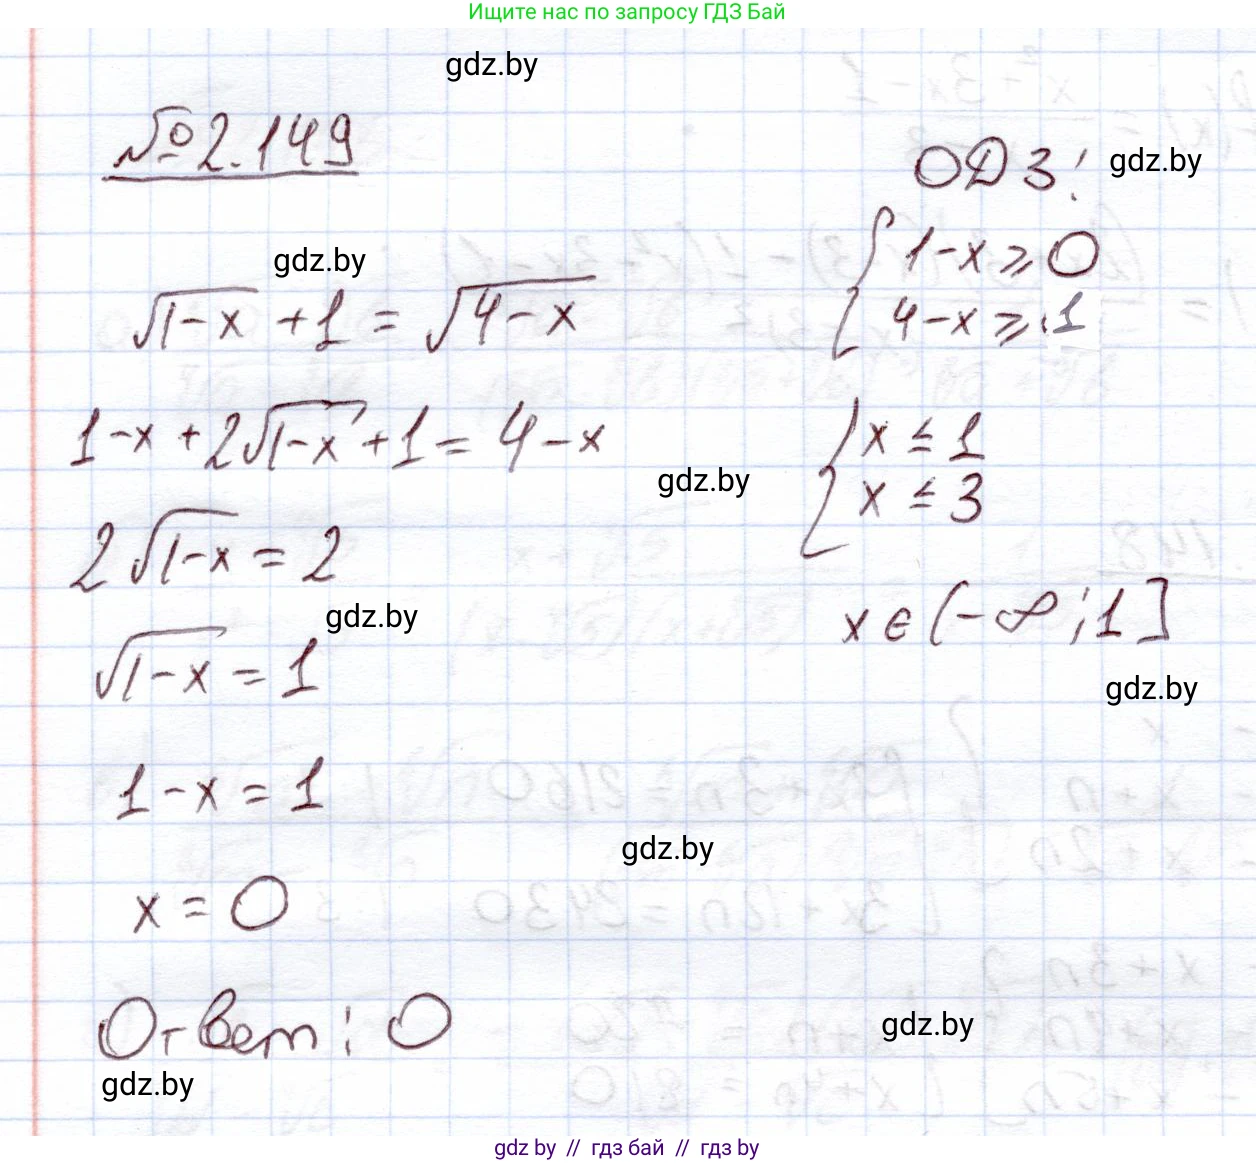 Ищите нас по запросу ГДЗ Бай
gdz.by
№2.149
ОДЗ:
gdz.by
{ 1-x ≥ 0
4-x ≥ 1
gdz.by
√(1-x) + 1 = √(4-x)
1-x + 2√(1-x) + 1 = 4-x
{ x ≤ 1
x ≤ 3
gdz.by
2√(1-x) = 2
x ∈ (-∞; 1]
gdz.by
√(1-x) = 1
gdz.by
1-x = 1
gdz.by
x = 0
Ответ: 0
gdz.by
gdz.by
gdz by // гдз бай // гдз by